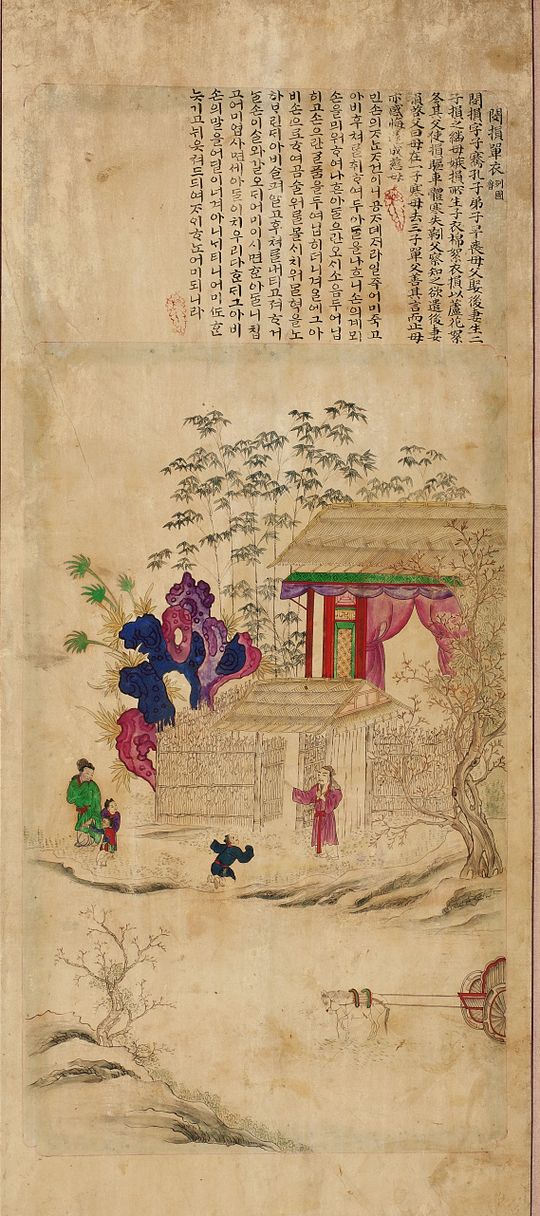 閔損單衣 列國
閔損字子騫孔子弟子早喪母父娶後妻生二
子損之繼母嫉損所生子衣棉絮衣損以蘆花絮
冬其父使損驅車體寒失靷父察知之欲遣後妻
損啓父曰母在一子寒母去三子單父善其言而止母
亦感悔遂成慈母
민손의ᄌᆞᄂᆞᆫᄌᆞ건이니공ᄌᆞ뎨ᄌᆞ라일죽어미죽고
아비후쳐ᄅᆞᆯᄎᆔᄒᆞ여두아ᄃᆞᆯ을나흐니손의계뫼
손을믜워ᄒᆞ여나흔아ᄃᆞᆯ으란오싀소음두어닙
히고손으란ᄀᆞᆯ품을두어닙히더니겨을에그아
비손으로ᄒᆞ여곰술위를몰ᄉᆡ치워ᄆᆞᆯ혁을노
하ᄇᆞ린대아비ᄉᆞᆯ펴알고후쳐ᄅᆞᆯ내티고져ᄒᆞ거
ᄂᆞᆯ손이ᄉᆞᆯ와ᄀᆞᆯ오ᄃᆡ어미이시면ᄒᆞᆫ아ᄃᆞᆯ이칩
고어미업ᄉᆞ면세아ᄃᆞᆯ이치우리다ᄒᆞᆫ대그아비
손의말을어딜이너겨아니내티니어미ᄯᅩᄒᆞᆫ
늣기고뉘웃쳐드듸여ᄌᆞ이ᄒᆞᄂᆞᆫ어미되니라